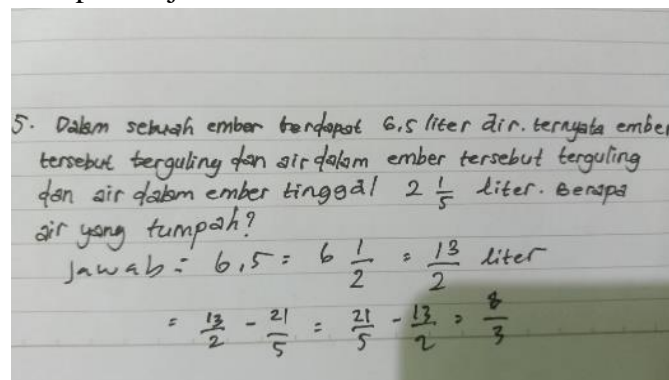 5. Dalam sebuah ember terdapat 6,5 liter air. ternyata ember
tersebut terguling dan air dalam ember tersebut terguling
dan air dalam ember tinggal 2 1/5 liter. Berapa
air yang tumpah?
Jawab = 6,5 = 6 1/2 = 13/2 liter
= 13/2 - 21/5 = 21/5 - 13/2 = 8/3